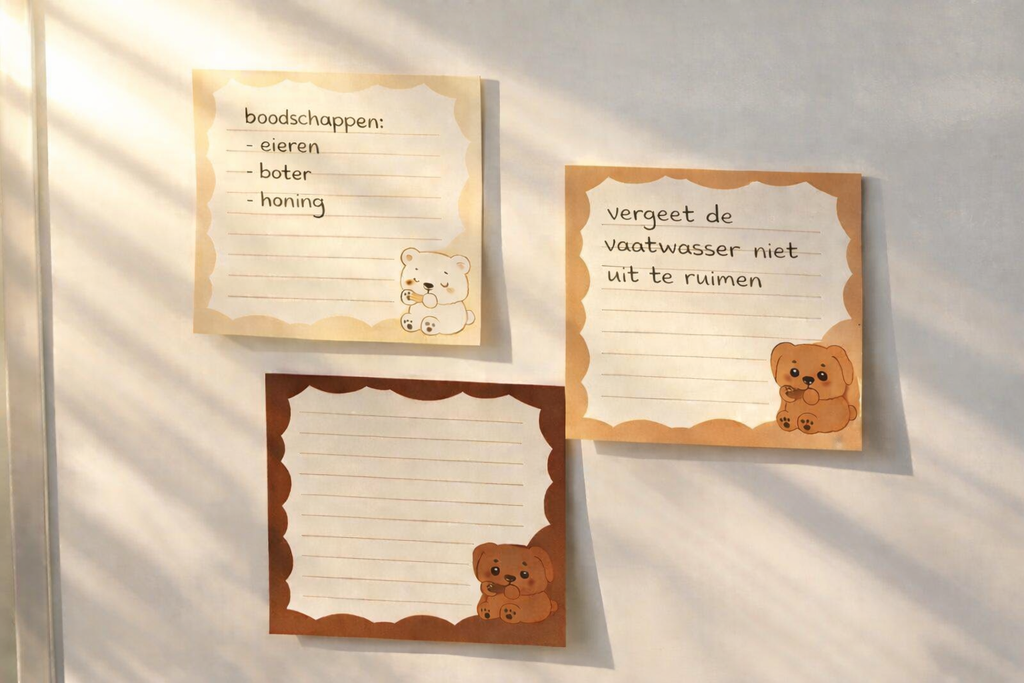 boodschappen:
- eieren
- boter
- honing
vergeet de
vaatwasser niet
uit te ruimen